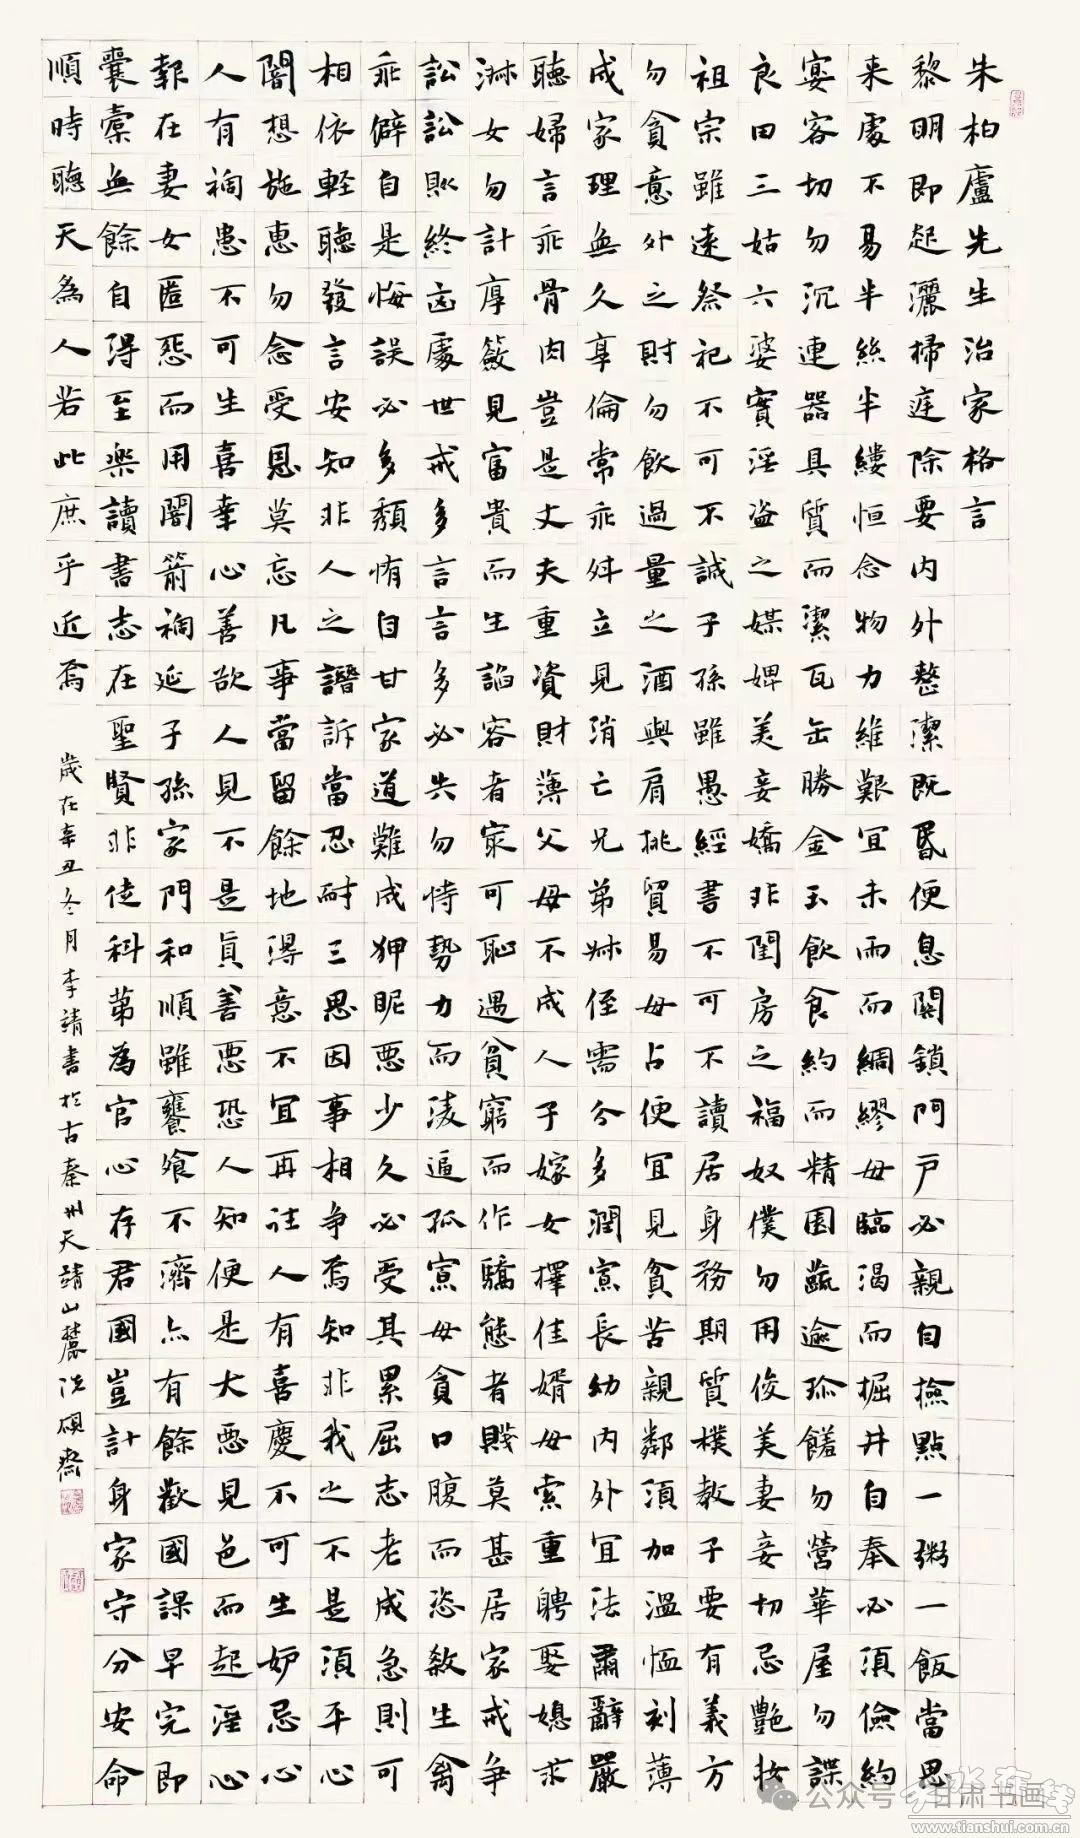 朱柏廬先生治家格言
黎明即起灑掃庭除要內外整潔既昏便息關鎖門户必親自撿點一粥一飯當思
来處不易半絲半縷恒念物力維艱宜未雨而綢繆毋臨渴而掘井自奉必須儉約
宴客切勿沉連器具質而潔瓦缶勝金玉飲食約而精園蔬逾珎饈勿營華屋勿謀
良田三姑六婆實淫盗之媒婢美妾嬌非閨房之福奴僕勿用俊美妻妾切忌艷妝
祖宗雖遠祭祀不可不誠子孫雖愚經書不可不讀居身務期質樸教子要有義方
勿貪意外之財勿飲過量之酒與肩挑貿易毋占便宜見貧苦親鄰須加溫恤刻薄
成家理無久享倫常乖舛立見消亡兄弟叔侄需分多潤寡長幼內外宜法肅辭嚴
聽婦言乖骨肉豈是丈夫重資財薄父母不成人子嫁女擇佳婿毋索重聘娶媳求
淑女勿計厚奩見富貴而生諂容者最可恥遇貧窮而作驕態者賤莫甚居家戒争
訟訟則終凶處世戒多言言多必失勿恃勢力而淩逼孤寡毋貪口腹而恣殺生禽
乖僻自是悔誤必多頹惰自甘家道難成狎昵惡少久必受其累屈志老成急則可
相依輕聽發言安知非人之譖訴當忍耐三思因事相争焉知非我之不是須平心
闇想施惠勿念受恩莫忘凡事當留餘地得意不宜再往人有喜慶不可生妒忌心
人有禍患不可生喜幸心善欲人見不是真善惡恐人知便是大惡見色而起淫心
報在妻女匿怨而用闇箭禍延子孫家門和順雖饔飧不濟亦有餘歡國課早完即
囊橐無餘自得至樂讀書志在聖賢非徒科第為官心存君國豈計身家守分安命
順時聽天為人若此庶乎近焉
歲在辛丑冬月李靖書於古秦州天靖山麓洗硯齋
公众号·甘肃书画
天水在线
www.tianshui.com.cn